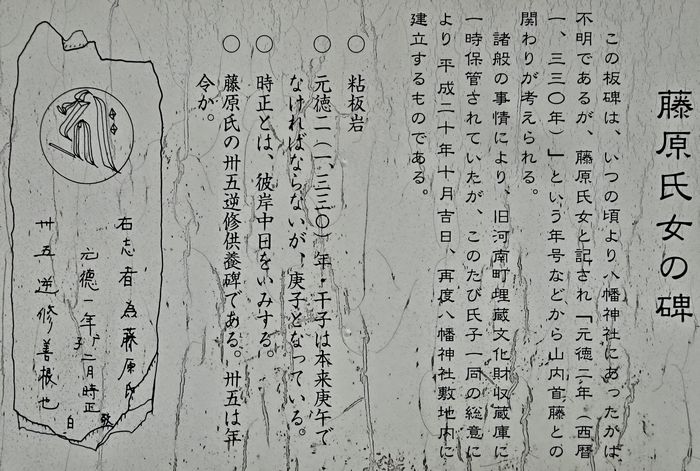 藤原氏女の碑
この板碑は、いつの頃より八幡神社にあったかは
不明であるが、藤原氏女と記され「元徳二年(西暦
一、三三〇年)」という年号などから山内首藤との
関わりが考えられる。
諸般の事情により、旧河南町埋蔵文化財収蔵庫に
一時保管されていたが、このたび氏子一同の総意に
より 平成二十年十月吉日、再度八幡神社敷地内に
建立するものである。
○ 粘板岩
○ 元徳二(一、三三〇)年・干子は本来庚午で
なければならないが、庚子となっている。
○ 時正とは、彼岸中日をいみする。
○ 藤原氏の卅五逆修供養碑である。卅五は年
令か。
右志者為藤原氏
元徳二年 二月時正
子
敬
白
卅五逆修善根也